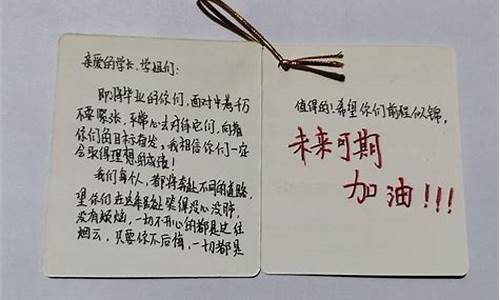 亲爱的学长、学姐们：
即将毕业的你们，面对中考千万
不要紧张，平常心去对待它们，向着
你们的目标奋发，我相信你们一定
会取得理想的成绩！
我们每个人，都将奔赴不同的道路，
望你们在这年龄处装得没心没肺，
没有烦恼，一切不开心的都是过往
烟云，只要你不后悔，一切都是
值得的！希望你们前程似锦，
未来可期
加油！！！